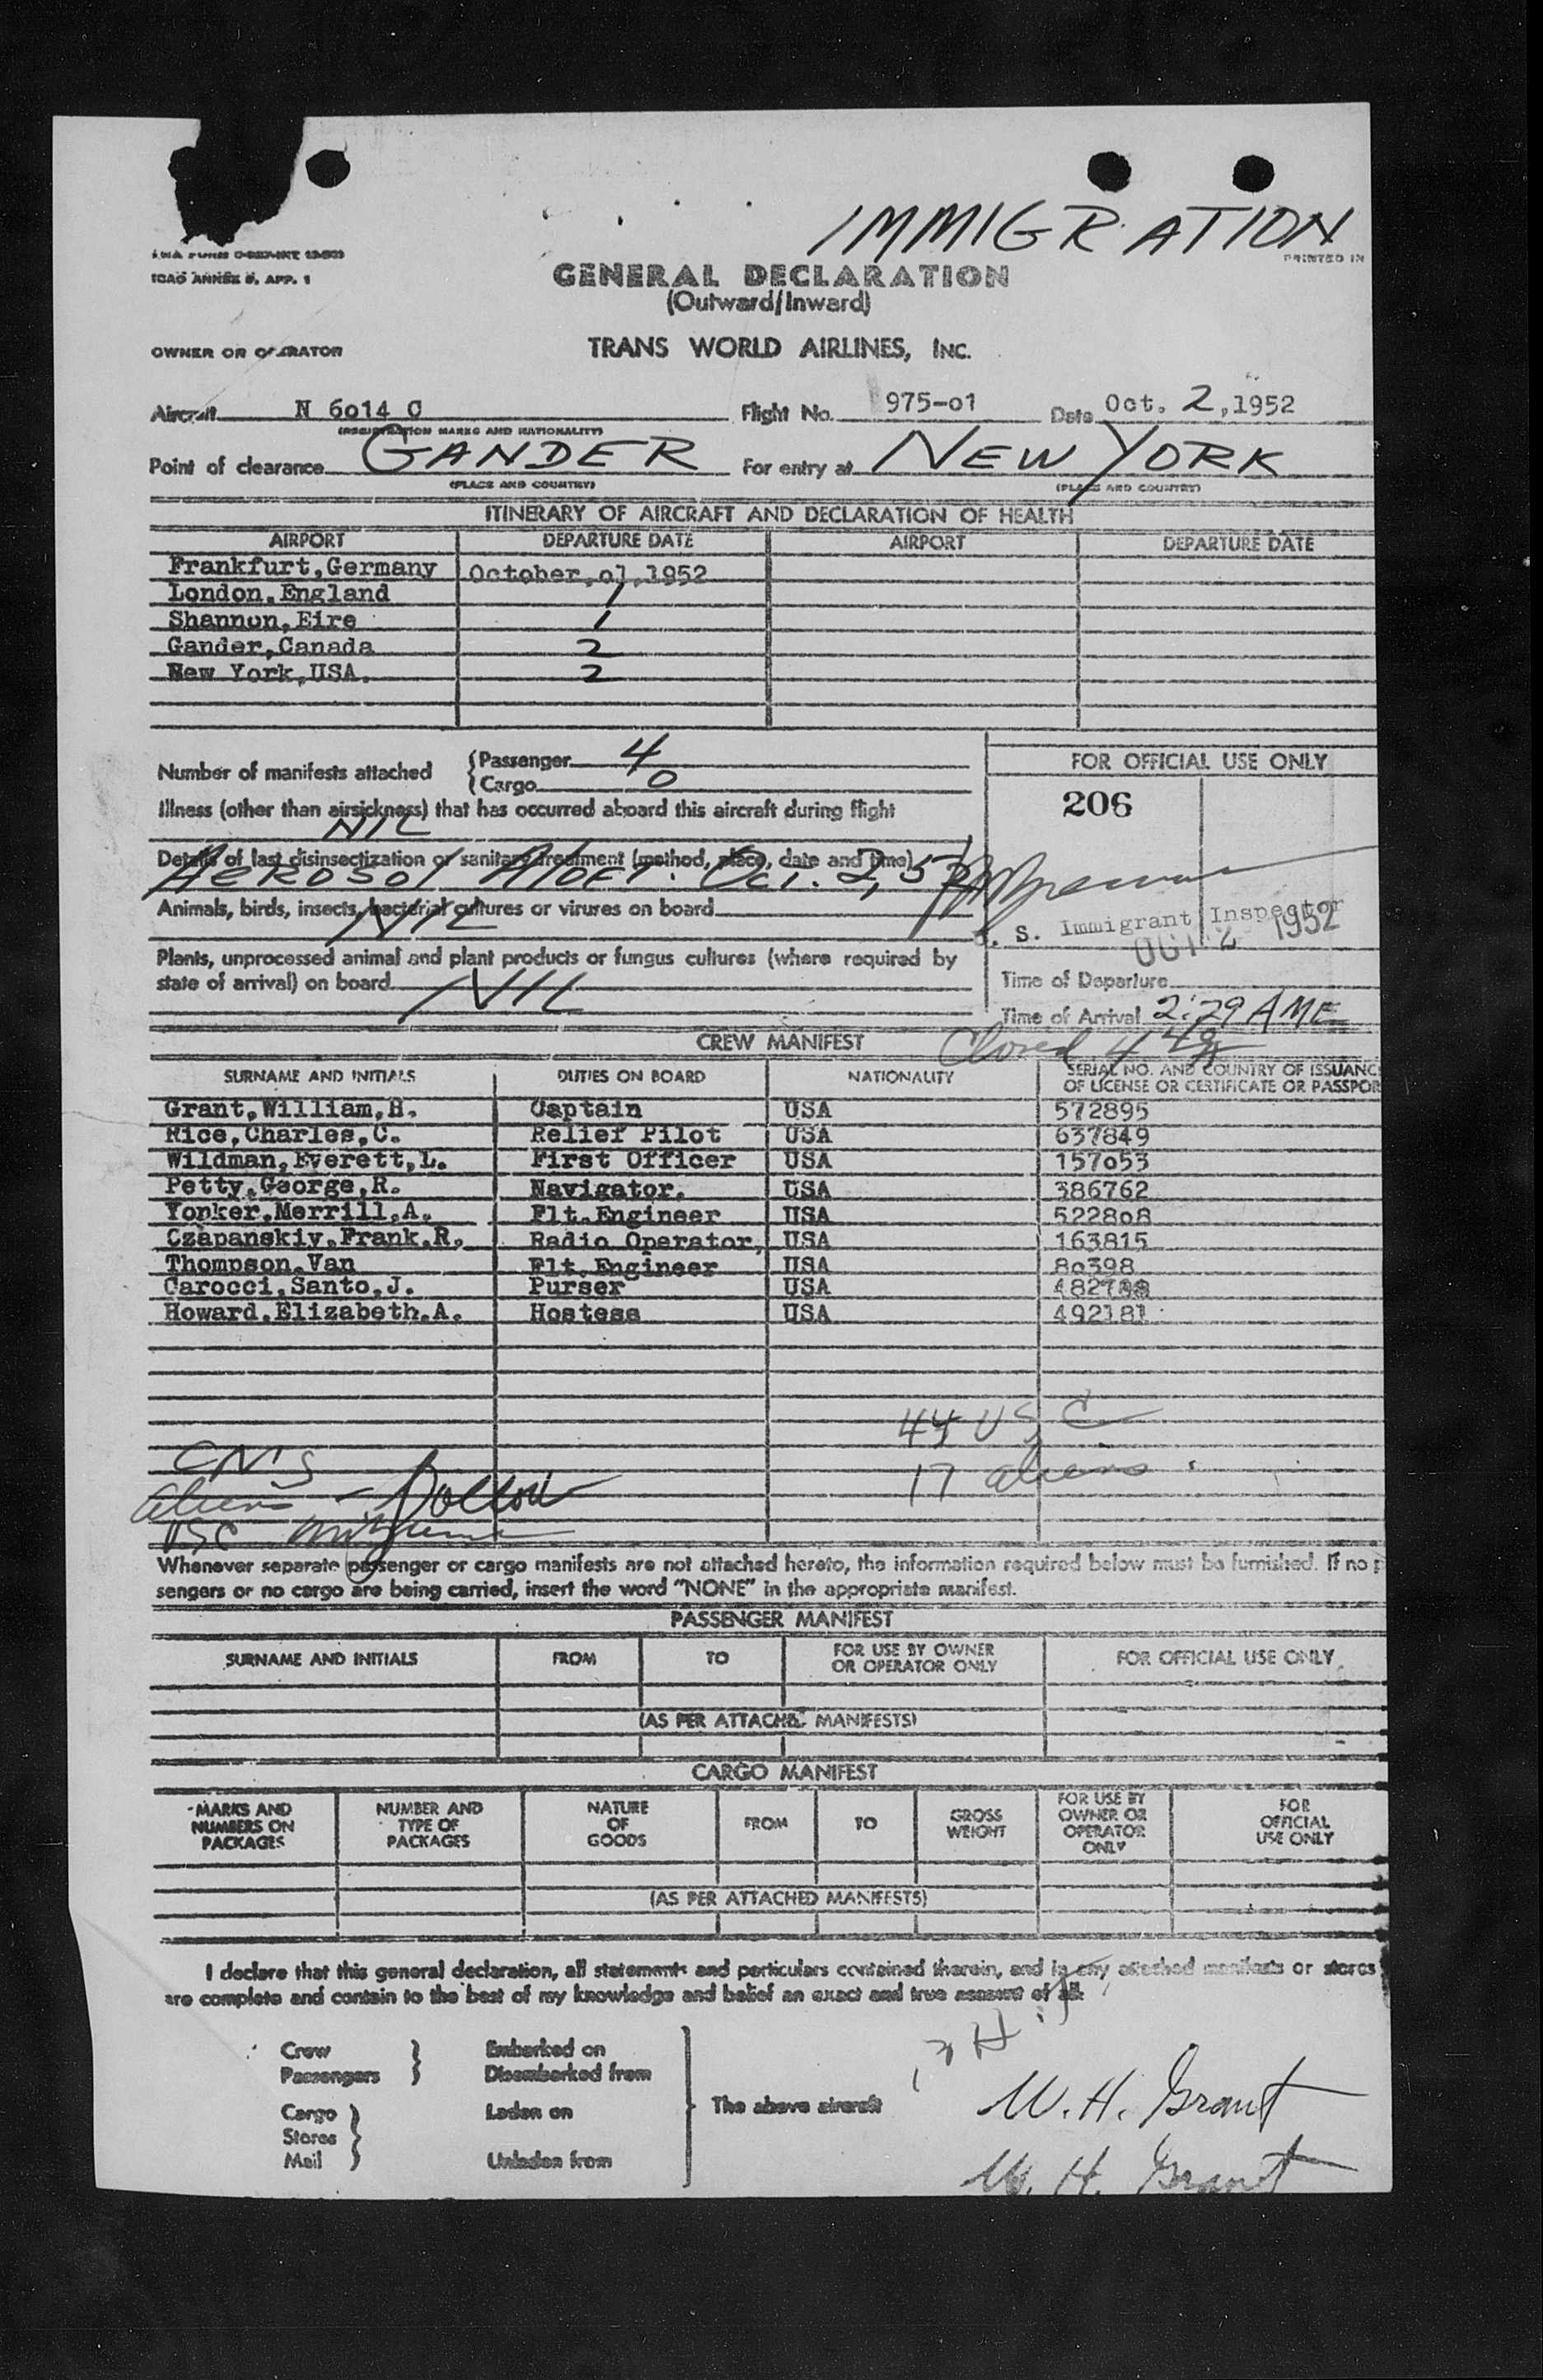 IMMIGRATION
PRINTED IN
ICAO ANNEX 9, APP. 1
GENERAL DECLARATION
(Outward/Inward)
OWNER OR OPERATOR
TRANS WORLD AIRLINES, INC.
Aircraft N 6o14 C Flight No. 975-o1 Date Oct. 2,1952
(REGISTRATION MARKS AND NATIONALITY)
Point of clearance GANDER For entry at NEW YORK
(PLACE AND COUNTRY) (PLACE AND COUNTRY)
ITINERARY OF AIRCRAFT AND DECLARATION OF HEALTH
AIRPORT DEPARTURE DATE AIRPORT DEPARTURE DATE
Frankfurt,Germany October,o1,1952
London,England 1
Shannon,Eire 1
Gander,Canada 2
New York,USA. 2
Number of manifests attached {Passenger 4
{Cargo 0
FOR OFFICIAL USE ONLY
206
Illness (other than airsickness) that has occurred aboard this aircraft during flight
NIL
Details of last disinsectization or sanitary treatment (method, place, date and time)
AEROSOL ALOFT. OCT. 2, 52
Animals, birds, insects, bacterial cultures or viruses on board
NIL
U. S. Immigrant Inspector
OCT 2 1952
Plants, unprocessed animal and plant products or fungus cultures (where required by
state of arrival) on board NIL
Time of Departure
Time of Arrival 2:29 AME
Closed 4
CREW MANIFEST
SURNAME AND INITIALS DUTIES ON BOARD NATIONALITY SERIAL NO. AND COUNTRY OF ISSUANC
OF LICENSE OR CERTIFICATE OR PASSPOR
Grant,William,H. Captain USA 572895
Rice,Charles,C. Relief Pilot USA 637849
Wildman,Everett,L. First Officer USA 157o53
Petty,George,R. Navigator. USA 386762
Yonker,Merrill,A. Flt.Engineer USA 5228o8
Czapanskiy,Frank,R. Radio Operator, USA 163815
Thompson,Van Flt.Engineer USA 8o398
Carocci,Santo,J. Purser USA
Howard,Elizabeth,A. Hostess USA 492181
44 USC
17 aliens
aliens -
USC
Whenever separate passenger or cargo manifests are not attached hereto, the information required below must be furnished. If no p
sengers or no cargo are being carried, insert the word "NONE" in the appropriate manifest.
PASSENGER MANIFEST
SURNAME AND INITIALS FROM TO FOR USE BY OWNER
OR OPERATOR ONLY FOR OFFICIAL USE ONLY
(AS PER ATTACHED MANIFESTS)
CARGO MANIFEST
MARKS AND
NUMBERS ON
PACKAGES
NUMBER AND
TYPE OF
PACKAGES
NATURE
OF
GOODS
FROM
TO
GROSS
WEIGHT
FOR USE BY
OWNER OR
OPERATOR
ONLY
FOR
OFFICIAL
USE ONLY
(AS PER ATTACHED MANIFESTS)
I declare that this general declaration, all statements and particulars contained therein, and in any attached manifests or stores
are complete and contain to the best of my knowledge and belief an exact and true account of all:
Crew } Embarked on
Passengers } Disembarked from
Cargo } Laden on
Stores
Mail } Unladen from
The above aircraft
W. H. Grant
W. H. Grant